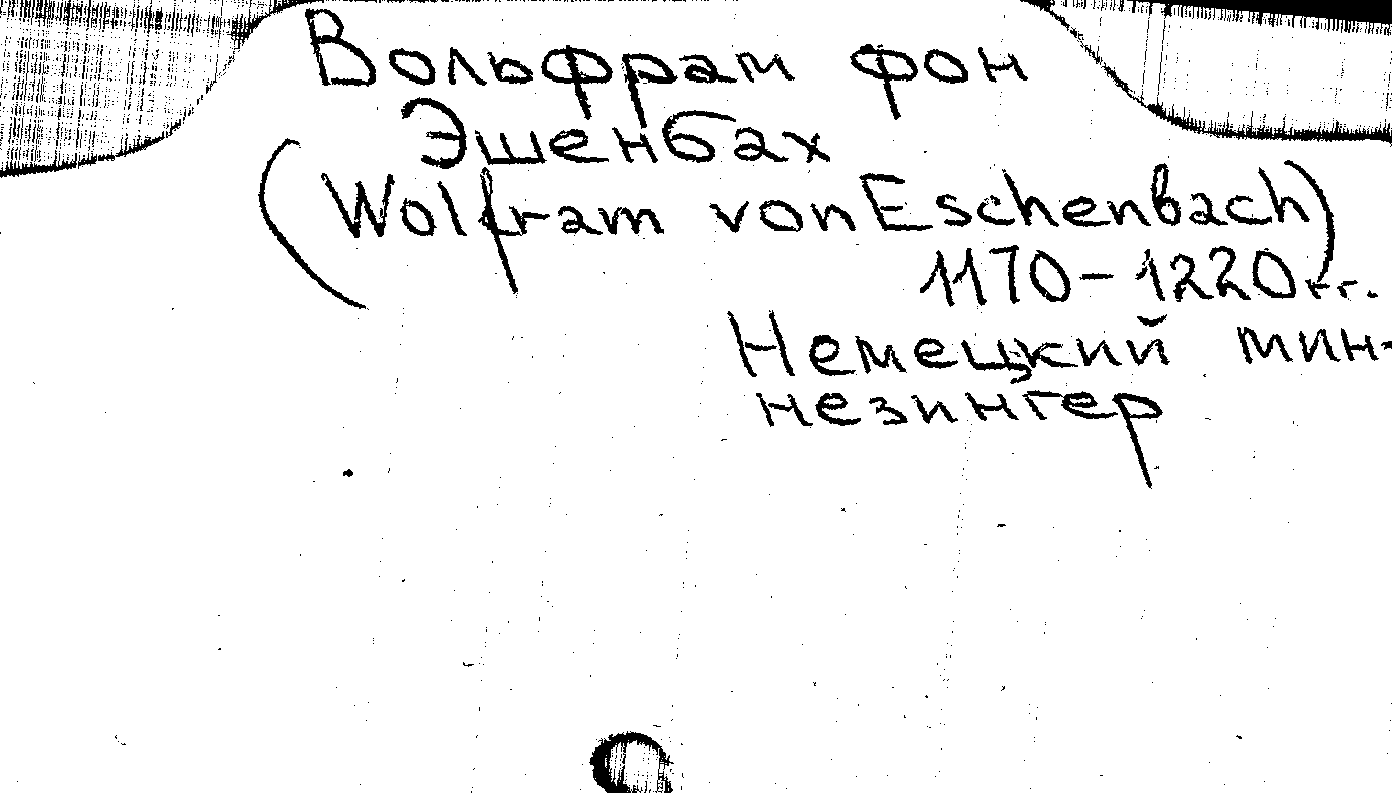 Вольфрам фон
Эшенбах
(Wolfram von Eschenbach)
1170-1220гг.
Немецкий мин-
незингер